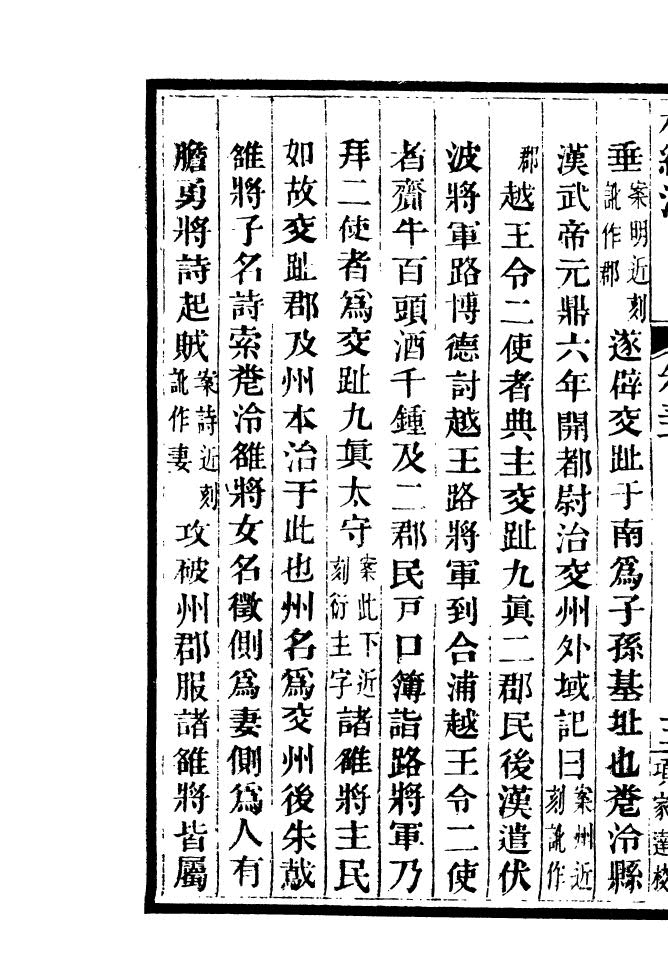 項家達校
垂案明近刻訛作郡遂僻交趾于南爲子孫基址也麊泠縣
漢武帝元鼎六年開都尉治交州外域記曰案州近刻訛作
郡越王令二使者典主交趾九眞二郡民後漢遣伏
波將軍路博德討越王路將軍到合浦越王令二使
者齎牛百頭酒千鍾及二郡民戸口簿詣路將軍乃
拜二使者爲交趾九眞太守案此下近刻衍主字諸雒將主民
如故交趾郡及州本治于此也州名爲交州後朱䳒
雒將子名詩索麊泠雒將女名徵側爲妻側爲人有
膽勇將詩起賊案詩近刻訛作妻攻破州郡服諸雒將皆屬